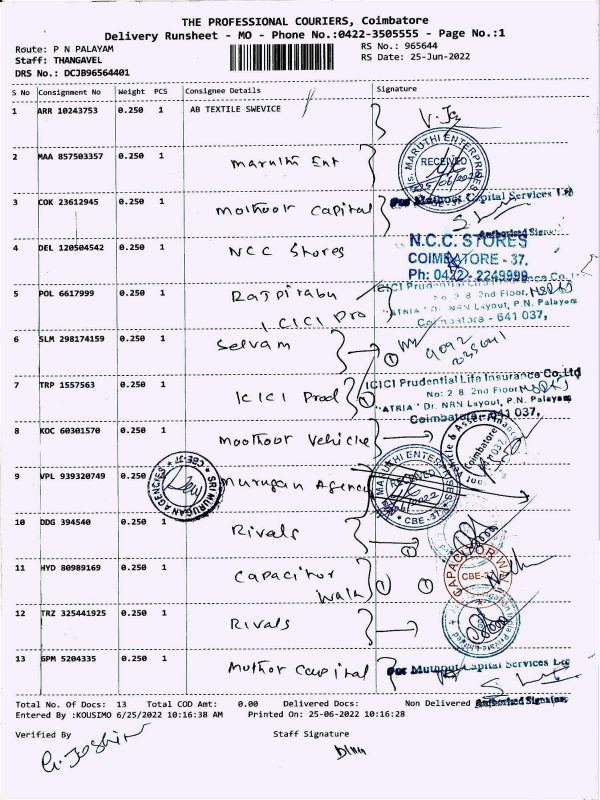 THE PROFESSIONAL COURIERS, Coimbatore
Delivery Runsheet - MO - Phone No.:0422-3505555 - Page No.:1
Route: P N PALAYAM
RS No.: 965644
Staff: THANGAVEL
RS Date: 25-Jun-2022
DRS No.: DCJB96564401
S No Consignment No Weight PCS Consignee Details Signature
1 ARR 10243753 0.250 1 AB TEXTILE SWEVICE
2 MAA 857503357 0.250 1 Maruthi Ent
MARUTHI ENTERPRISES RECEIVED
3 COK 23612945 0.250 1 Mothoot Capital
For Muthoot Capital Services Ltd
Authorised Signatory
4 DEL 120504542 0.250 1 NCC Stores
N.C.C. STORES
COIMBATORE - 37.
Ph: 0422- 2249999
5 POL 6617999 0.250 1 Rajpirabu
ICICI Pro
ICICI Prudential Life Insurance Co.
No: 2 8, 2nd Floor,
"ATRIA" Dr. NRN Layout, P.N. Palayam
Coimbatore - 641 037,
6 SLM 298174159 0.250 1 Selvam
7 TRP 1557563 0.250 1 ICICI Prod
ICICI Prudential Life Insurance Co. Ltd
No: 2 8, 2nd Floor
"ATRIA" Dr. NRN Layout, P.N. Palayam
Coimbatore - 641 037,
8 KOC 60301570 0.250 1 Moothoot Vehicle
Coimbatore
9 VPL 939320749 0.250 1 Murugan Agency
SRI MURUGAN AGENCIES CBE-37
MARUTHI ENTERPRISES RECEIVED CBE-37
10 DDG 394540 0.250 1 Rivals
11 HYD 80989169 0.250 1 Capacitor
Wala
CAPACITOR WALA CBE-37
12 TRZ 325441925 0.250 1 Rivals
13 GPM 5204335 0.250 1 Muthor Capital
For Muthoot Capital Services Ltd
Authorised Signatory
Total No. Of Docs: 13 Total COD Amt: 0.00 Delivered Docs: Non Delivered
Entered By :KOUSIMO 6/25/2022 10:16:38 AM Printed On: 25-06-2022 10:16:28
Verified By Staff Signature